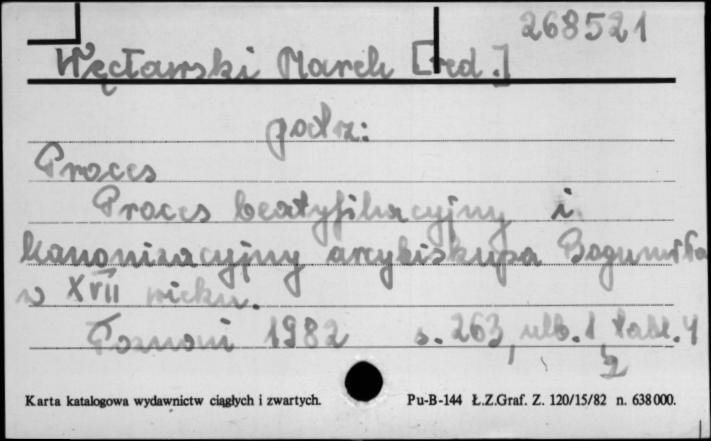 268521
Węcławski Marek [red.]
patrz:
Proces
Proces beatyfikacyjny i
kanonizacyjny arcybiskupa Bogumiła
w XVII wieku.
Poznań 1982 s. 263, nlb. 1, tabl. 4
2
Karta katalogowa wydawnictw ciągłych i zwartych. Pu-B-144 Ł.Z.Graf. Z. 120/15/82 n. 638000.